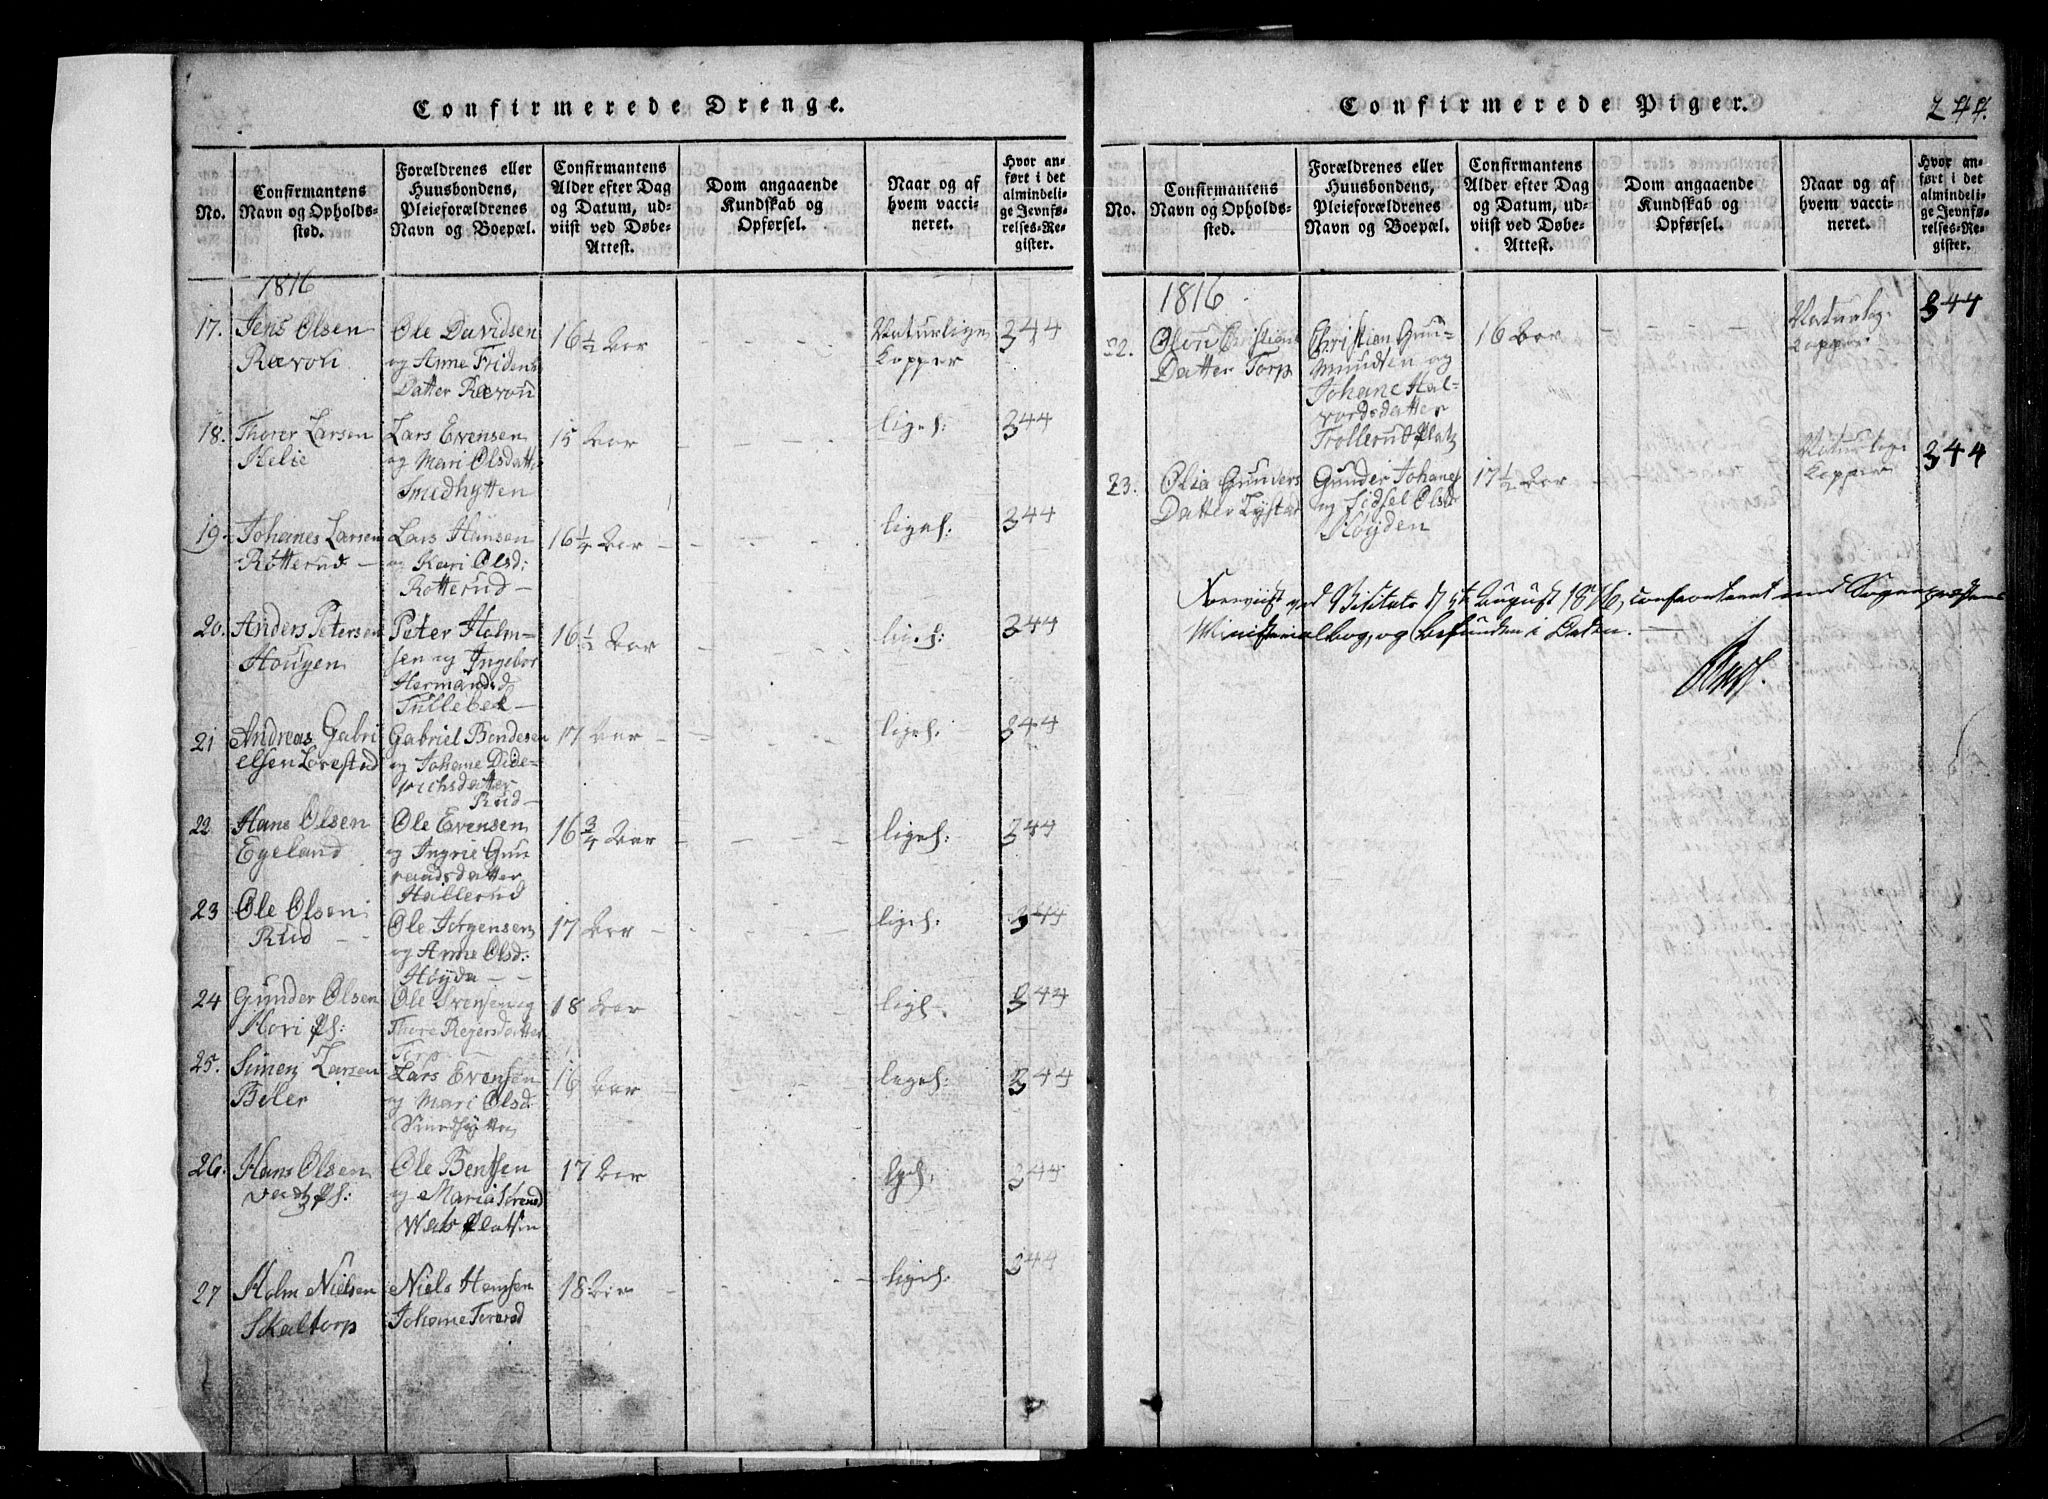 Confirmerede Drenge.
No.
Confirmantens
Navn og Opholds-
sted.
Forældrenes eller
Huusbondens,
Pleieforældrenes
Navn og Boepæl.
Confirmantens
Alder efter Dag
og Datum, ud-
viist ved Døbe-
Attest.
Dom angaaende
Kundskab og
Opførsel.
Naar og af
hvem vacci-
neret.
Hvor an-
ført i det
almindeli-
ge Jevnfø-
relses-Re-
gister.
1816
17. Jens Olsen
Rævou
Ole Davidsen
og Anne
Datter Rævou
16 1/2 Aar
Naturlige
Kopper
344
18. Thorer Larsen
Helie
Lars Evensen
og Mari Olsdatter
Smedhytten
15 Aar
ligel:
344
19. Johanes Larsen
Rotterud
Lars Hansen
og Kari Olsd:
Rotterud
16 1/4 Aar
ligel:
344
20. Anders Petersen
Hougen
Peter Holm-
sen og Ingebor
Hermandsd
Tullebek
16 1/2 Aar
344
21 Andreas Gabri
elsen Lørestad
Gabriel Bendesen
og Johane Dide-
richsdatter
Rud
17 Aar
ligel:
344
22 Hans Olsen
Egeland
Ole Evensen
og Ingrie Gun
Hallerud
16 3/4 Aar
ligel:
344
23 Ole Olsen
Rud
Ole Jørgensen
og Anne Olsd:
Høyda
17 Aar
ligel:
344
24 Gunder Olsen
Hovi Pl:
Ole
Thore Regersdatter
Torp
18 Aar
ligel.
344
25. Simen Larsen
Bøler
Lars Evensen
og Mari Olsd
Smedhytten
16 Aar
ligel:
344
26. Hans Olsen
Pl:
Ole Bentsen
og Maria Sørensd
17 Aar
344
27 Holm Nielsen
Skaltorp
Niels Hansen
Johane
18 Aar
ligel:
344
Confirmerede Piger.
244.
No.
Confirmantens
Navn og Opholds-
sted.
Forældrenes eller
Huusbondens,
Pleieforældrenes
Navn og Boepæl.
Confirmantens
Alder efter Dag
og Datum, ud-
viist ved Døbe-
Attest.
Dom angaaende
Kundskab og
Opførsel.
Naar og af
hvem vacci-
neret.
Hvor an-
ført i det
almindeli-
ge Jevnfø-
relses-Re-
gister.
1816
22.
Datter Torp
Christian Gun-
mundsen og
Johane Hal-
vordsdatter
Trollerud Platz
16 Aar
Naturlige
Kopper
344
23. Olia Gunders
Datter
Gunder Johanes
og Sidsel Olsd
Høyden
17 1/2 Aar
Naturlige
Kopper
344
Foreviist ved Visitats d 5te August 1816, confronteret med Sognepræstens
Ministerialbog, og befunden i Orden.